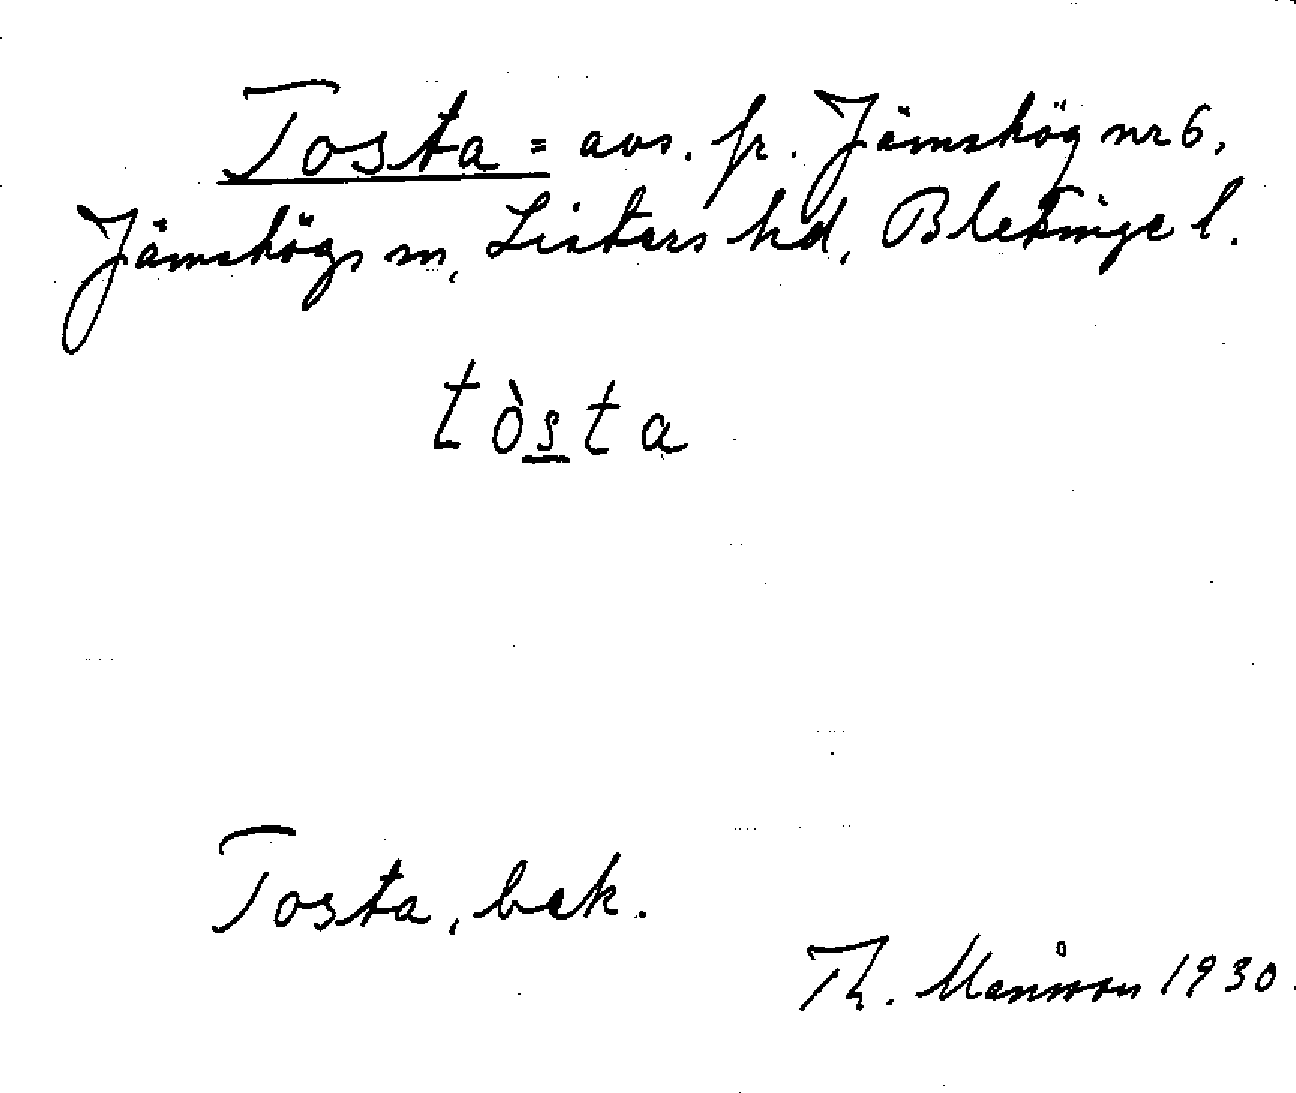 Tosta = avs. fr. Jämshög nr 6,
Jämshögs sn, Listers hd, Blekinge l.
tòsta
Tosta, bek.
Th. Månsson 1930.